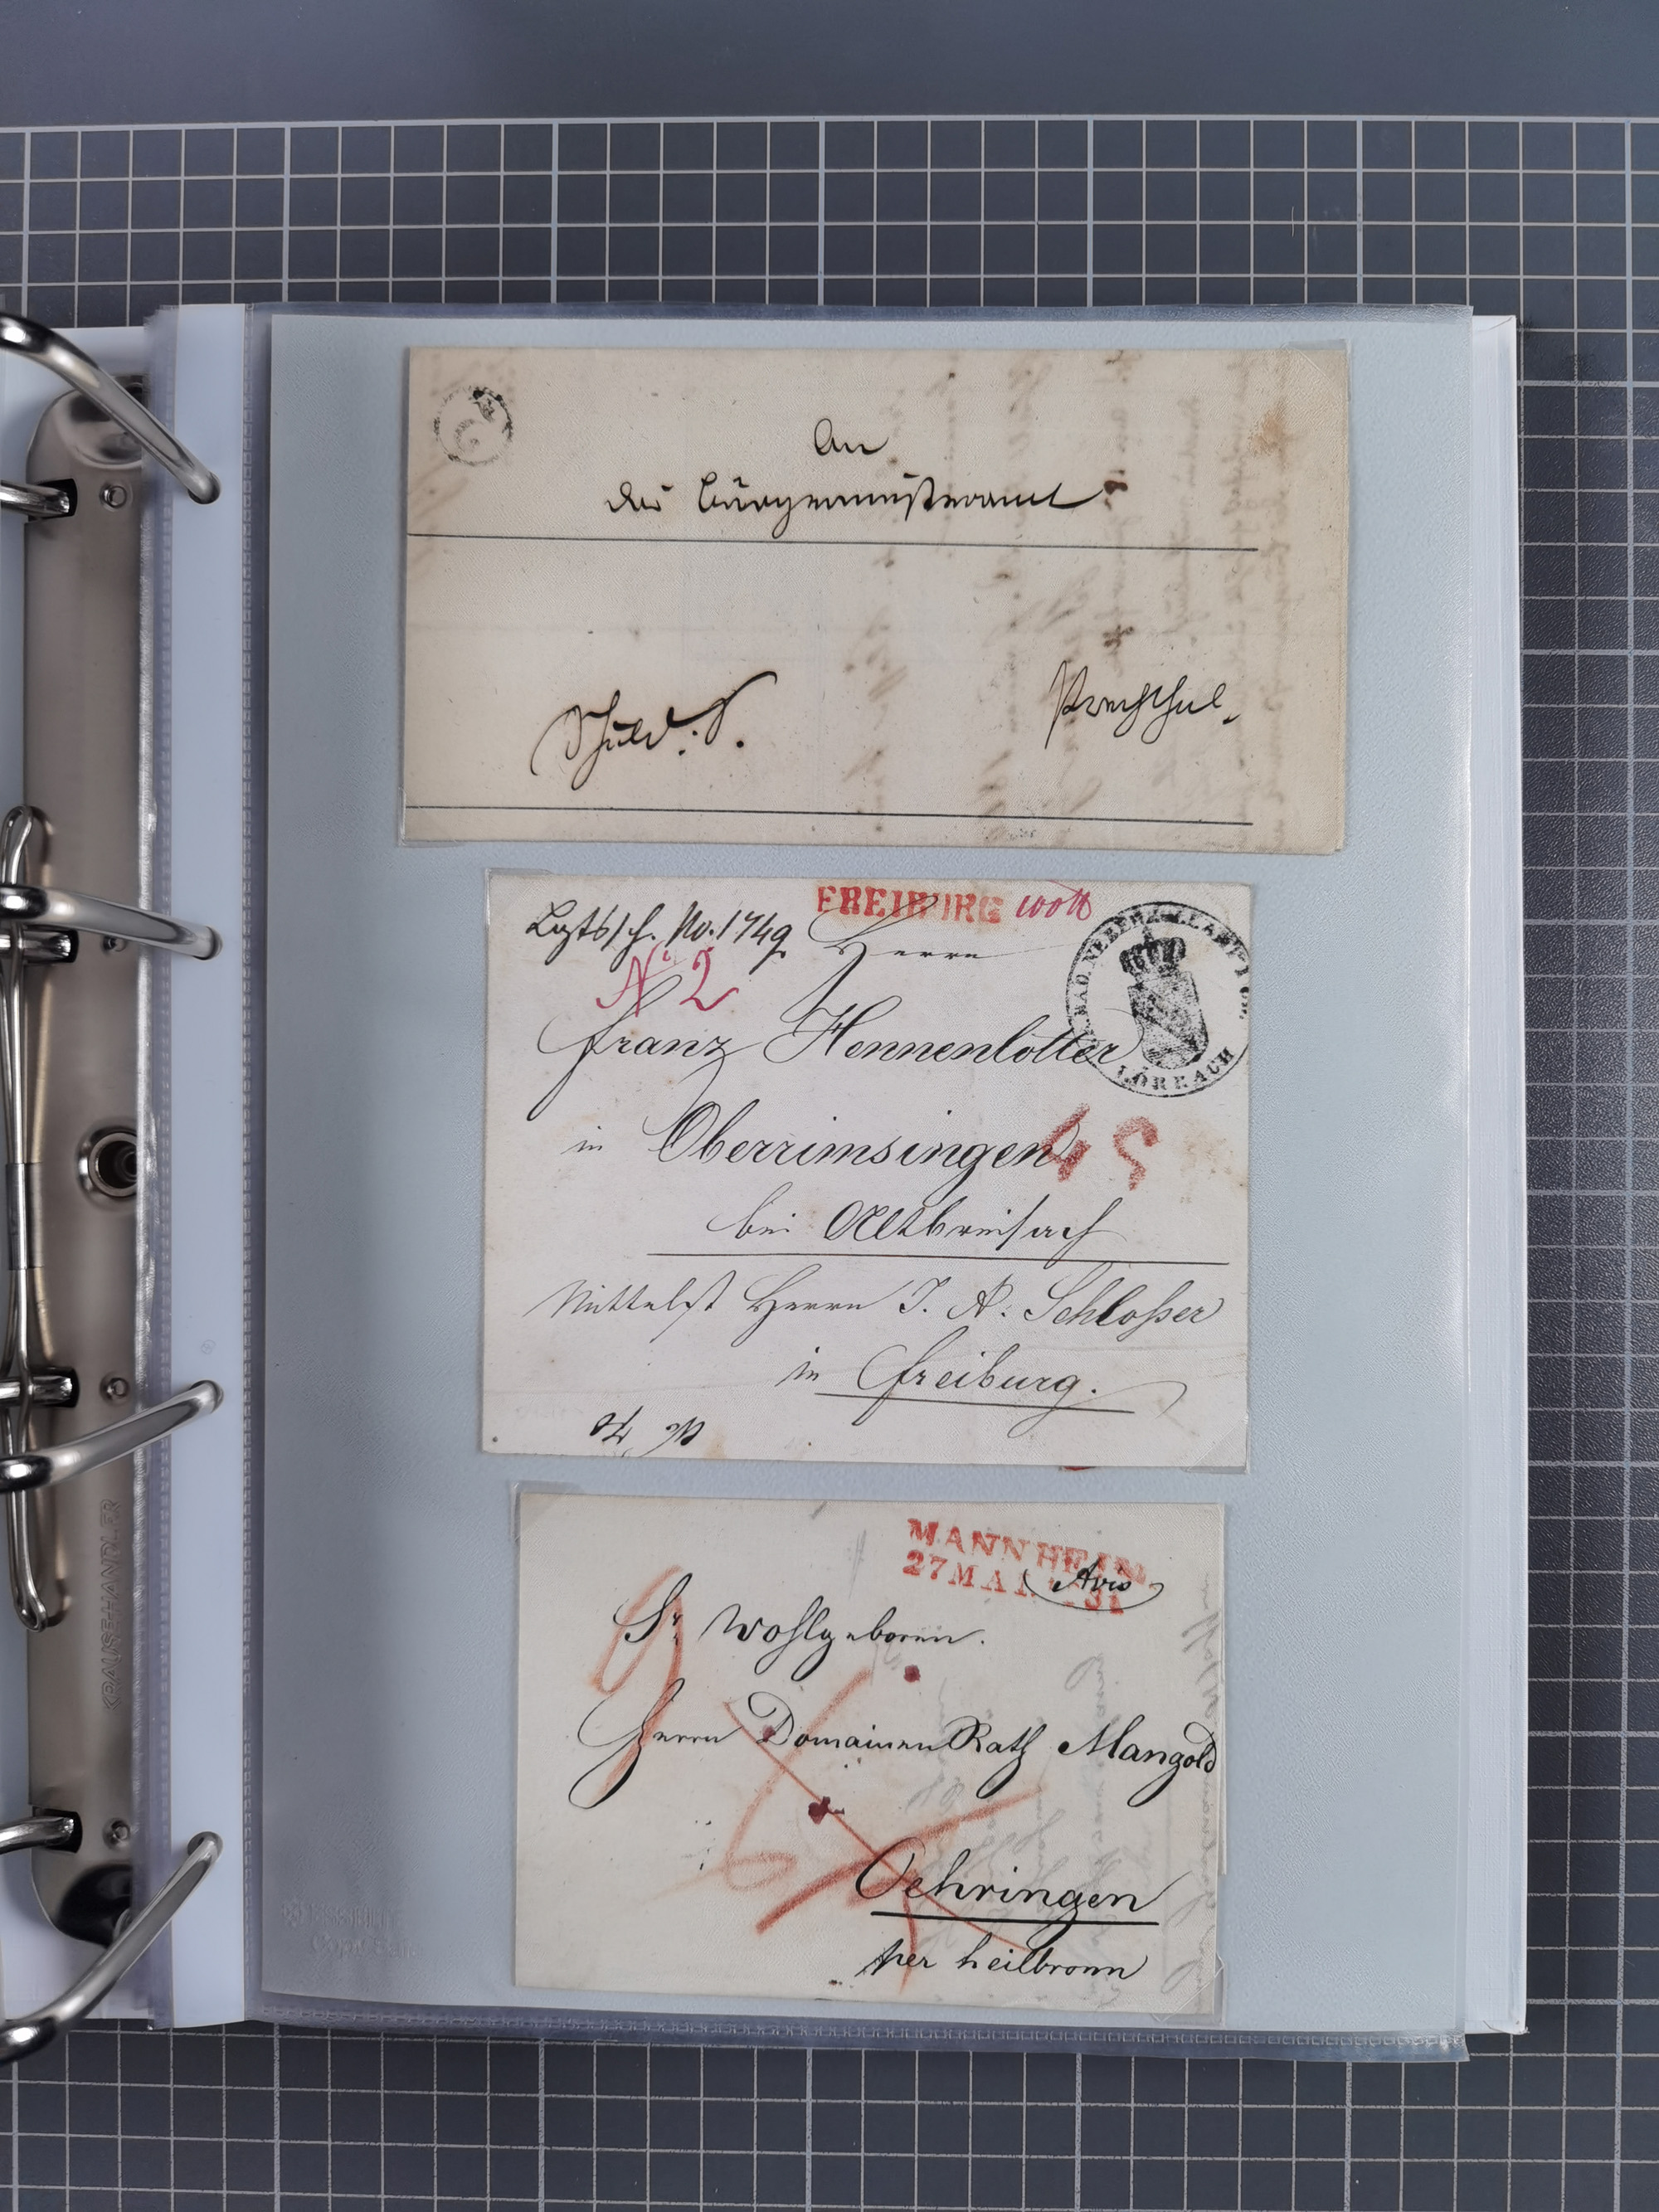 An
das Bürgermeisteramt
Schuld. S.
Prechthal.
FREIBURG
Lgtbsch. No. 1749 Herrn
No 2
Franz Hennenlotter
in Oberrimsingen
bei Altbreisach
Mittelst Herrn J. A. Schloßer
in Freiburg.
LÖRRACH
MANNHEIM
27 MAI 31
Avis
Sr. Wohlgeboren.
Herrn Domainen Rath Mangold
Oehringen
per heilbronn
KRAUSEHANDLER